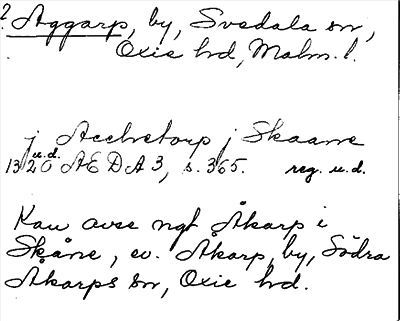 ? Aggarp, by, Svedala sn,
Oxie hd, Malm. l.
j Acchetorp j Skaane
1320 u.d. AEDA 3, s. 365. reg. u.d.
Kan avse ngt Åkarp i
Skåne, ev. Åkarp, by, Södra
Åkarps sn, Oxie hd.